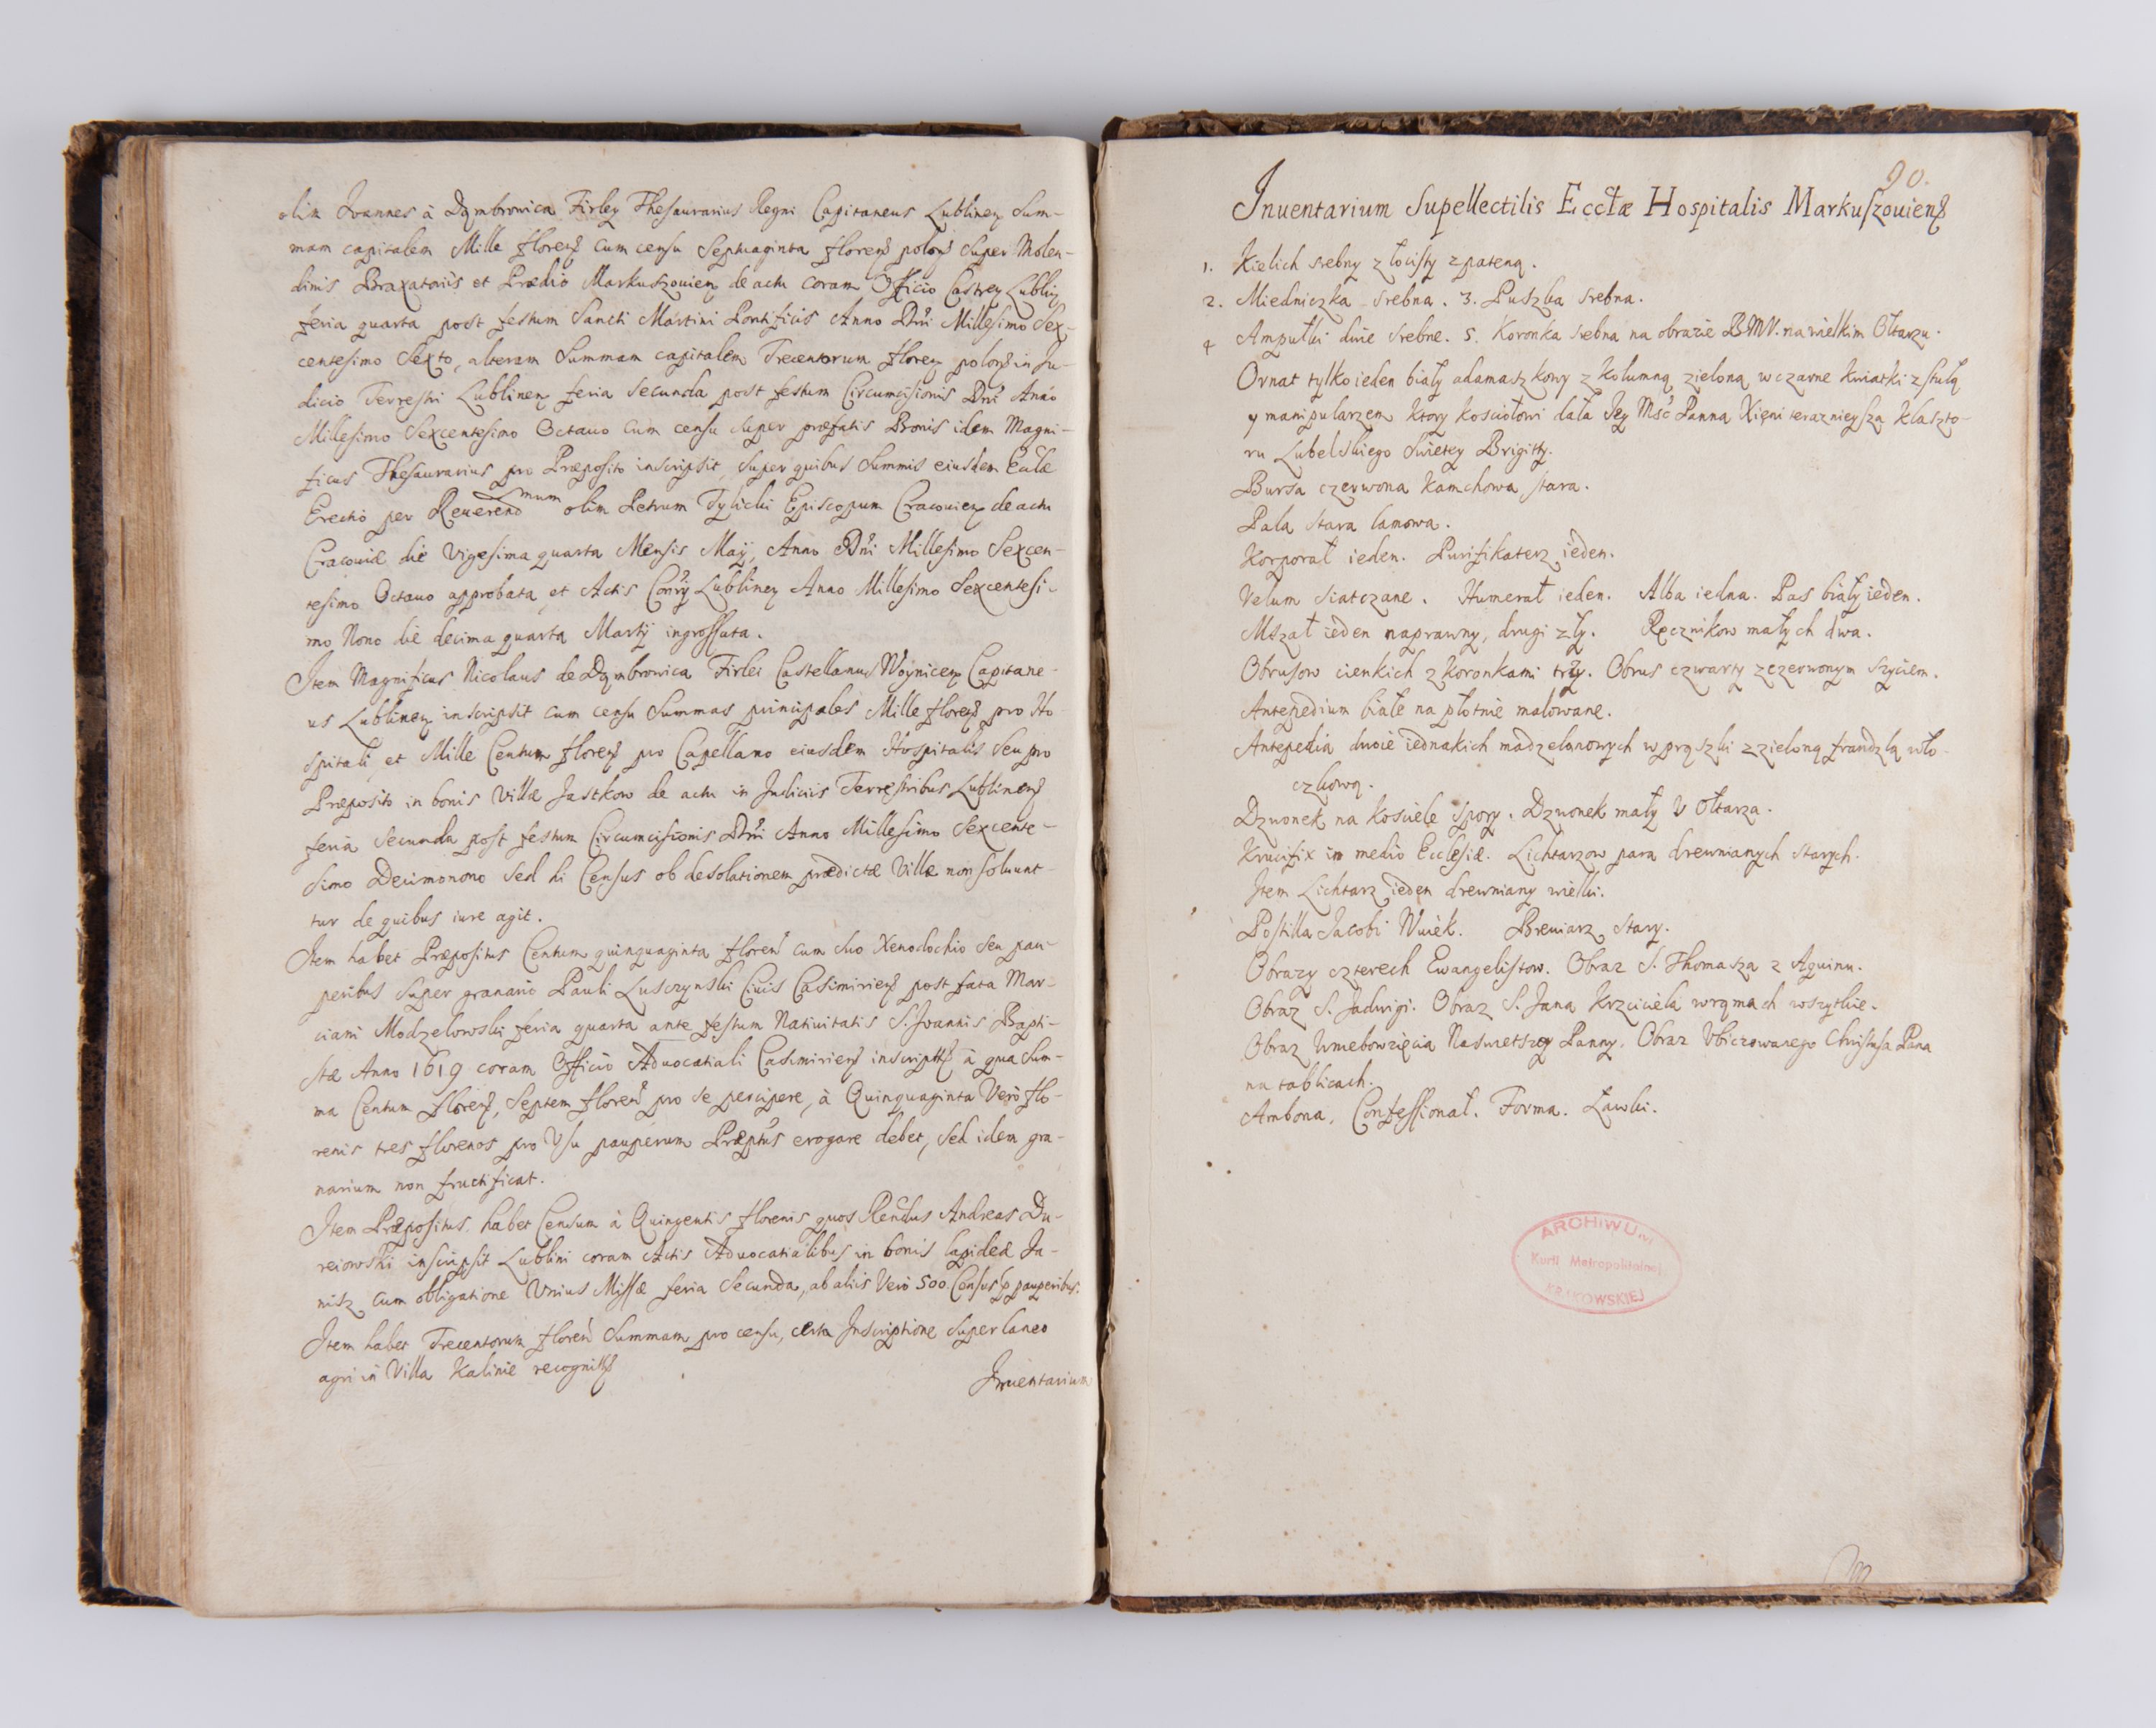 olim Ioannes à Dąmbrowica Firley Thesaurarius Regni Capitaneus Lublinen Sum-
mam capitalem Mille floren cum censu Septuaginta floren polon super Molen-
dinis Braxatoriis et Prædio Markuszouien de actu coram Officio Castren Lublin
feria quarta post festum Sancti Martini Pontificis Anno Dni Millesimo Sex-
centesimo Sexto, alteram Summam capitalem Trecentorum floren polon in Ju-
dicio Terrestri Lublinen feria secunda post festum Circumcisionis Dni Anno
Millesimo Sexcentesimo Octauo cum censu super præfatis Bonis idem Magni-
ficus Thesaurarius pro Præposito inscripsit, super quibus Summis eiusdem Eccłæ
Erectio per Reuerendmum olim Petrum Tylicki Episcopum Cracouien de actu
Cracouiæ die Vigesima quarta Mensis Maij, Anno Dni Millesimo Sexcen-
tesimo Octauo approbata et Actis Lublinen Anno Millesimo Sexcentesi-
mo Nono die decima quarta Martij ingrossata.
Item Magnificus Nicolaus de Dąmbrowica Firlei Castellanus Woynicen Capitane-
us Lublinen inscripsit cum censu Summas principales Mille floren pro Ho-
spitali, et Mille Centum floren pro Capellano eiusdem Hospitalis seu pro
Præposito in bonis Villæ Jastkow de actu in Judiciis Terrestribus Lublinen
feria secunda post festum Circumcisionis Dni Anno Millesimo Sexcente-
simo Decimonono sed hi Census ob desolationem prædictæ Villæ non soluunt-
tur de quibus iure agit.
Item habet Præpositus Centum quinquaginta floren cum suo Xenodochio seu pau-
peribus super granario Pauli Lusczynski Ciuis Casimirien post fata Mar-
ciani Modzelowski feria quarta ante festum Natiuitatis S. Joannis Bapti-
stæ Anno 1619 coram Officio Aduocatiali Casimirien inscript à qua Sum-
ma Centum floren, Septem floren pro se percipere, à Quinquaginta Verò flo-
renis tres florenos pro Vsu pauperum Præptus erogare debet, sed idem gra-
narium non fructificat.
Item Præpositus habet Censum à Quingentis florenis quos Rendus Andreas Du-
reiowski inscripsit Lublini coram Actis Aduocatialibus in bonis lapideæ Ja-
nisz cum obligatione Vnius Missæ feria Secunda, ab aliis Vero 500 Census p pauperibus.
Item habet Trecentorum floren Summam pro censu, certa Inscriptione super laneo
agri in Villa Kalinie recognit
Inuentarium
90.
Inuentarium Supellectilis Eccłæ Hospitalis Markuszouien
1. Kielich srebny złocisty z pateną.
2. Miedniczka srebna. 3. Puszka srebna.
4 Ampułki dwie srebne. 5. Koronka srebna na obrazie BMV. na wielkim Ołtarzu.
Ornat tylko ieden biały adamaszkowy z kolumną zieloną w czarne kwiatki z stułą
y manipularzem ktory kosciołowi dała Jey Mść Panna Xięni teraznieysza klaszto-
ru Lubelskiego Swietey Brigitty.
Bursa czerwona kamchowa stara.
Pala stara lamowa.
Korporał ieden. Purifikaterz ieden.
Velum siatczane. Humerał ieden. Alba iedna. Pas biały ieden.
Mszał ieden naprawny, drugi zły. Ręcznikow małych dwa.
Obrusow cienkich z koronkami trzy. Obrus czwarty z czerwonym szyciem.
Antepedium białe na płotnie malowane.
Antepedia dwoie iednakich madzelanowych w prążki z zieloną frandzlą wło-
czkową.
Dzwonek na kosciele spory. Dzwonek mały V Ołtarza.
Krucifix in medio Ecclesiæ. Lichtarzow para drewnianych starych.
Item Lichtarz ieden drewniany wielki.
Postilla Jacobi Wuiek. Breuiarz stary.
Obrazy czterech Ewangelistow. Obraz S. Thomasza z Aquinu.
Obraz S. Jadwigi. Obraz S. Jana Krzciciela w rąmach wszytkie.
Obraz Wniebowzięcia Naswietszey Panny. Obraz Vbiczowanego Christusa Pana
na tablicach.
Ambona. Confessionał. Forma. Ławki.
ARCHIWUM
Kurii Metropolitalnej
KRAKOWSKIEJ